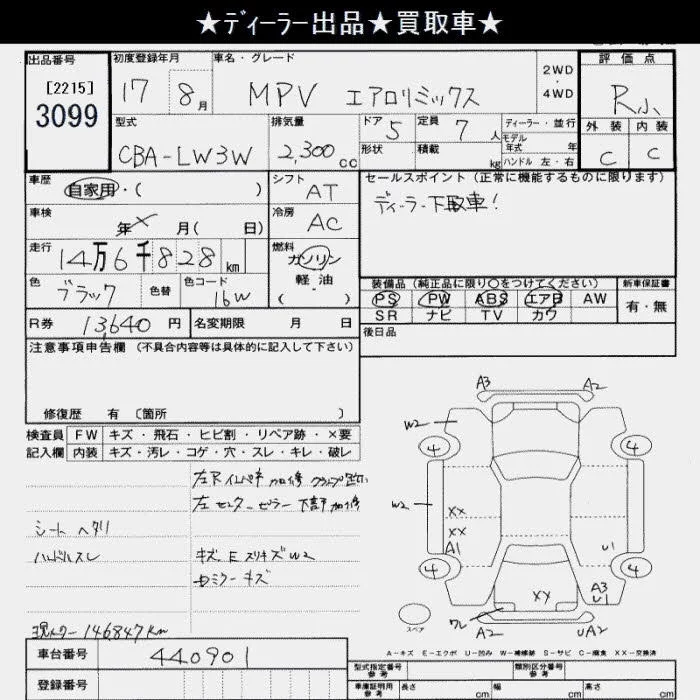 ★ディーラー出品★買取車★
出品番号 初度登録年月 車名・グレード 評価点
[2215] 3099 17 8月 MPV エアロリミックス 2WD・4WD R小
型式 排気量 ドア 定員 ディーラー・並行 外装 内装
CBA-LW3W 2,300cc 5 7人 モデル年式 年 C C
形状 積載 kg ハンドル 左・右
車歴 自家用・( ) シフト AT セールスポイント(正常に機能するものに限ります)
車検 年×月( 日) 冷房 AC ディーラー下取車!
走行 14万6千828km 燃料 ガソリン 軽・油 ( )
色 ブラック 色替 色コード 16W
装備品(純正品に限り○をつけてください) 新車保証書
PS PW ABS エアB AW 有・無
SR ナビ TV カワ
R券 13,640円 名変期限 月 日 後日品
注意事項申告欄(不具合内容等は具体的に記入して下さい)
修復歴 有〔箇所 〕
検査員 FW キズ・飛石・ヒビ割・リペア跡・×要
記入欄 内装 キズ・汚レ・コゲ・穴・スレ・キレ・破レ
左センターピラー下部加修
シートヘタリ
ハンドルスレ
キズ、E スリキズW2
ミラーキズ
現メーター146847km
A3 A2
W2 4 4
W2
XX
XX
A1 U1
4 4
XX A3
U1
ワレ A2 UA2
スペア
A-キズ E-エクボ U-凹み W-補修跡 S-サビ C-腐食 XX-交換済
車台番号 440901 型式指定番号 参考 類別区分番号 参考
登録番号 車庫証明用 参考 長さ cm 幅 cm 高さ cm